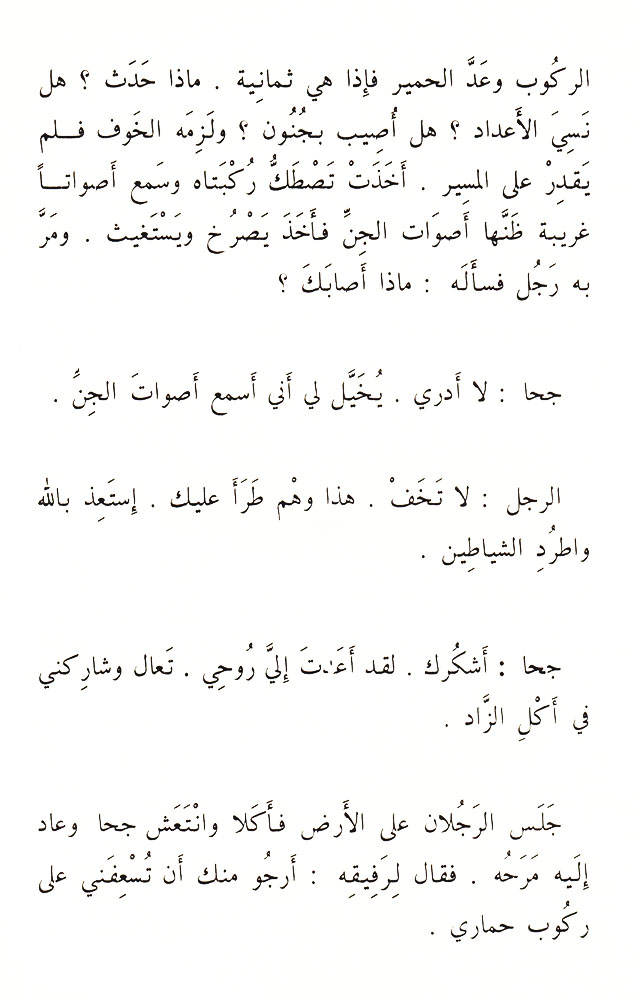 الركُوب وعَدَّ الحمير فإِذا هي ثمانِية . ماذا حَدَث ؟ هل
نَسِيَ الأَعداد ؟ هل أُصِيب بجُنُون ؟ ولَزِمَه الخَوف فلم
يَقدِرْ على المسِير . أَخَذَتْ تَصْطَكُّ رُكْبَتاه وسَمع أَصواتاً
غريبة ظَنَّها أَصوَات الجِنِّ فأَخَذَ يَصْرُخ ويَسْتَغيث . ومَرَّ
به رَجُل فسأَلَه : ماذا أَصابَكَ ؟
جحا : لا أَدري . يُخَيَّل لي أَني أَسمع أَصواتَ الجِنِّ .
الرجل : لا تَخَفْ . هذا وهْم طَرَأَ عليك . إِستَعِذ بالله
واطرُدِ الشياطِين .
جحا : أَشكُرك . لقد أَعَدتَ إِليَّ رُوحِي . تَعال وشارِكني
في أَكْلِ الزَّاد .
جَلَس الرَجُلان على الأَرض فأَكَلا وانْتَعَش جحا وعاد
إِلَيه مَرَحُه . فقال لِرَفِيقِه : أَرجُو منك أَن تُسْعِفَني على
ركُوب حماري .